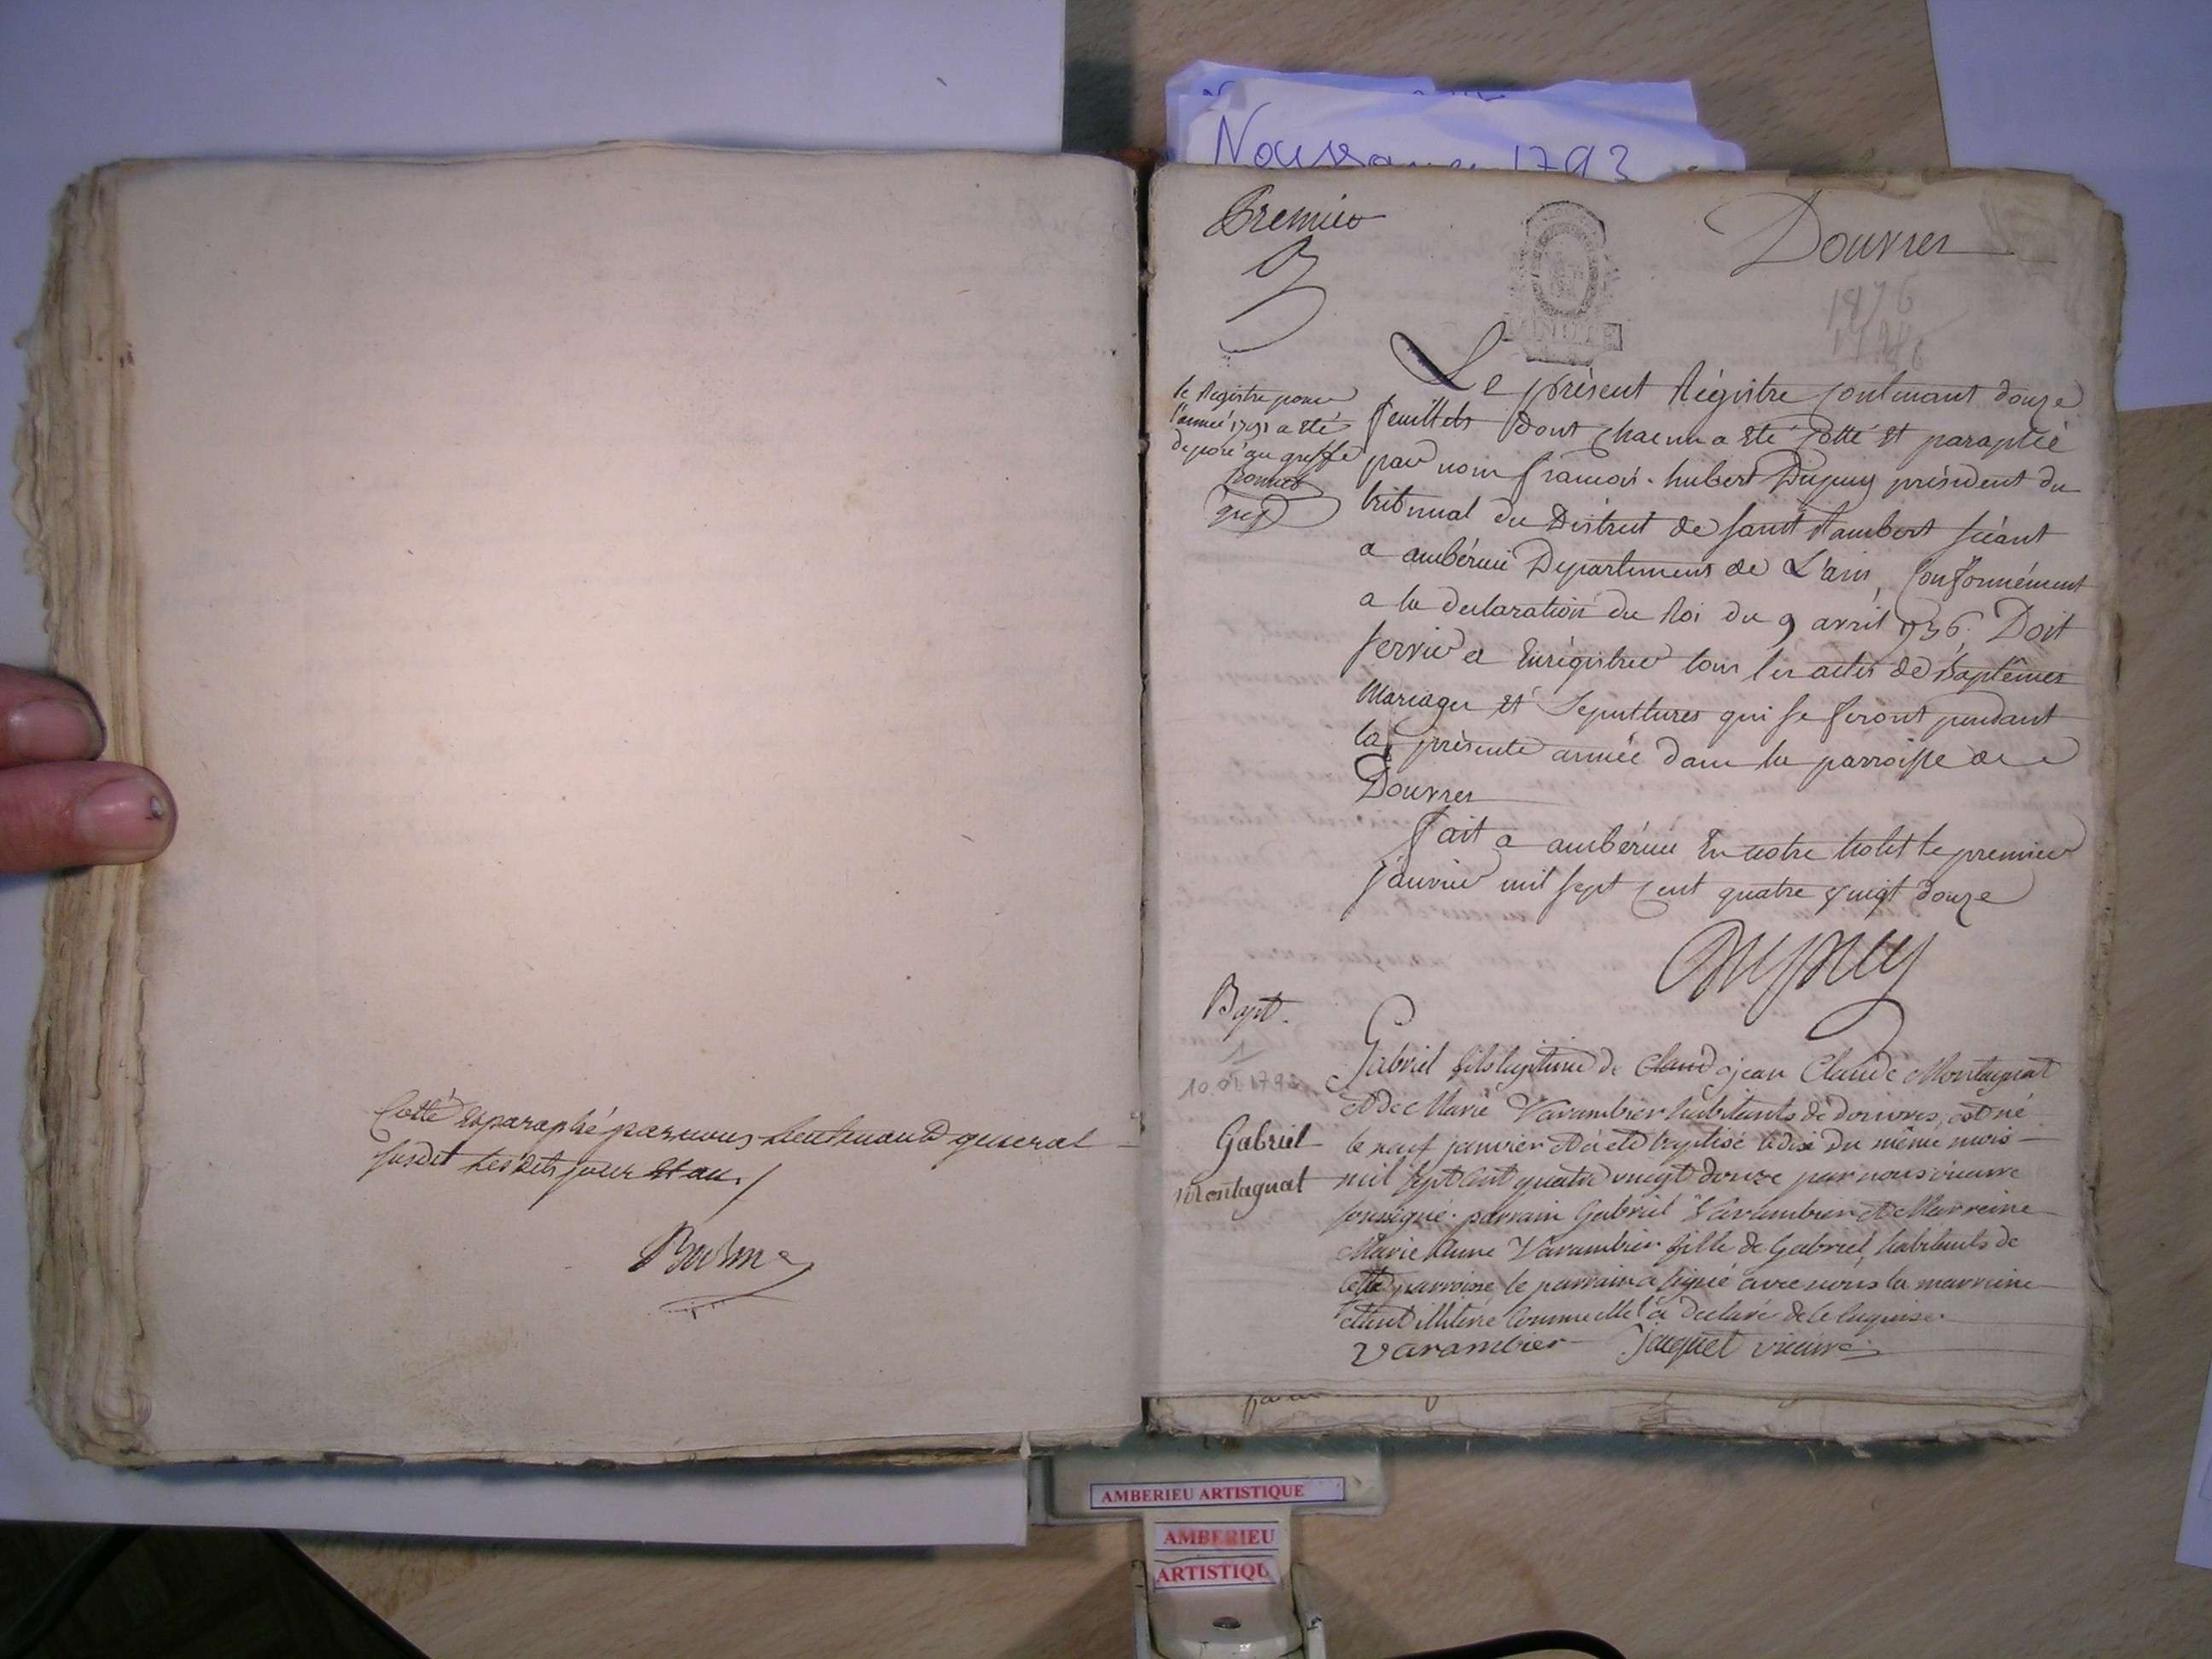 Cotté et paraphé par nous Lieutenant general
susdit les dits jour et an.
1793
Premier
Douvres
le Registre pour
l'année 1791 a été
deposé au greffe
greff
Le présent Régistre contenant douze
feuillets dont chacun a été cotté et paraphé
par nous françois-hubert Dupuy président du
tribunal du District de saint Rambert séant
a ambérieu Departement de L'ain, Conformément
a la declaration du Roi du 9 avril 1736. Doit
servir a Enrégistrer tous les actes de Baptêmes
Mariages et Sepultures qui se feront pendant
la présente année dans la parroisse de
Douvres
fait a ambérieu En notre hotel le premier
janvier mil sept cent quatre vingt douze
Dupuy
Bapt.
1
Gabriel
Montagnat
Gabriel fils legitime de Claud jean Claude Montagnat
et de Marie Varambier habitants de douvres, est né
le neuf janvier et a eté baptisé le dix du même mois
mil sept cent quatre vingt douze par nous vicaire
soussigné. parrain Gabriel Varambier et Marreine
Marie Anne Varambier fille de Gabriel, habitants de
cette parroisse, le parrain a signé avec nous la marreine
étant illiterée comme elle l'a declaré de ce enquise.
Varambier Jacquet vicaire
AMBERIEU ARTISTIQUE
AMBERIEU
ARTISTIQU